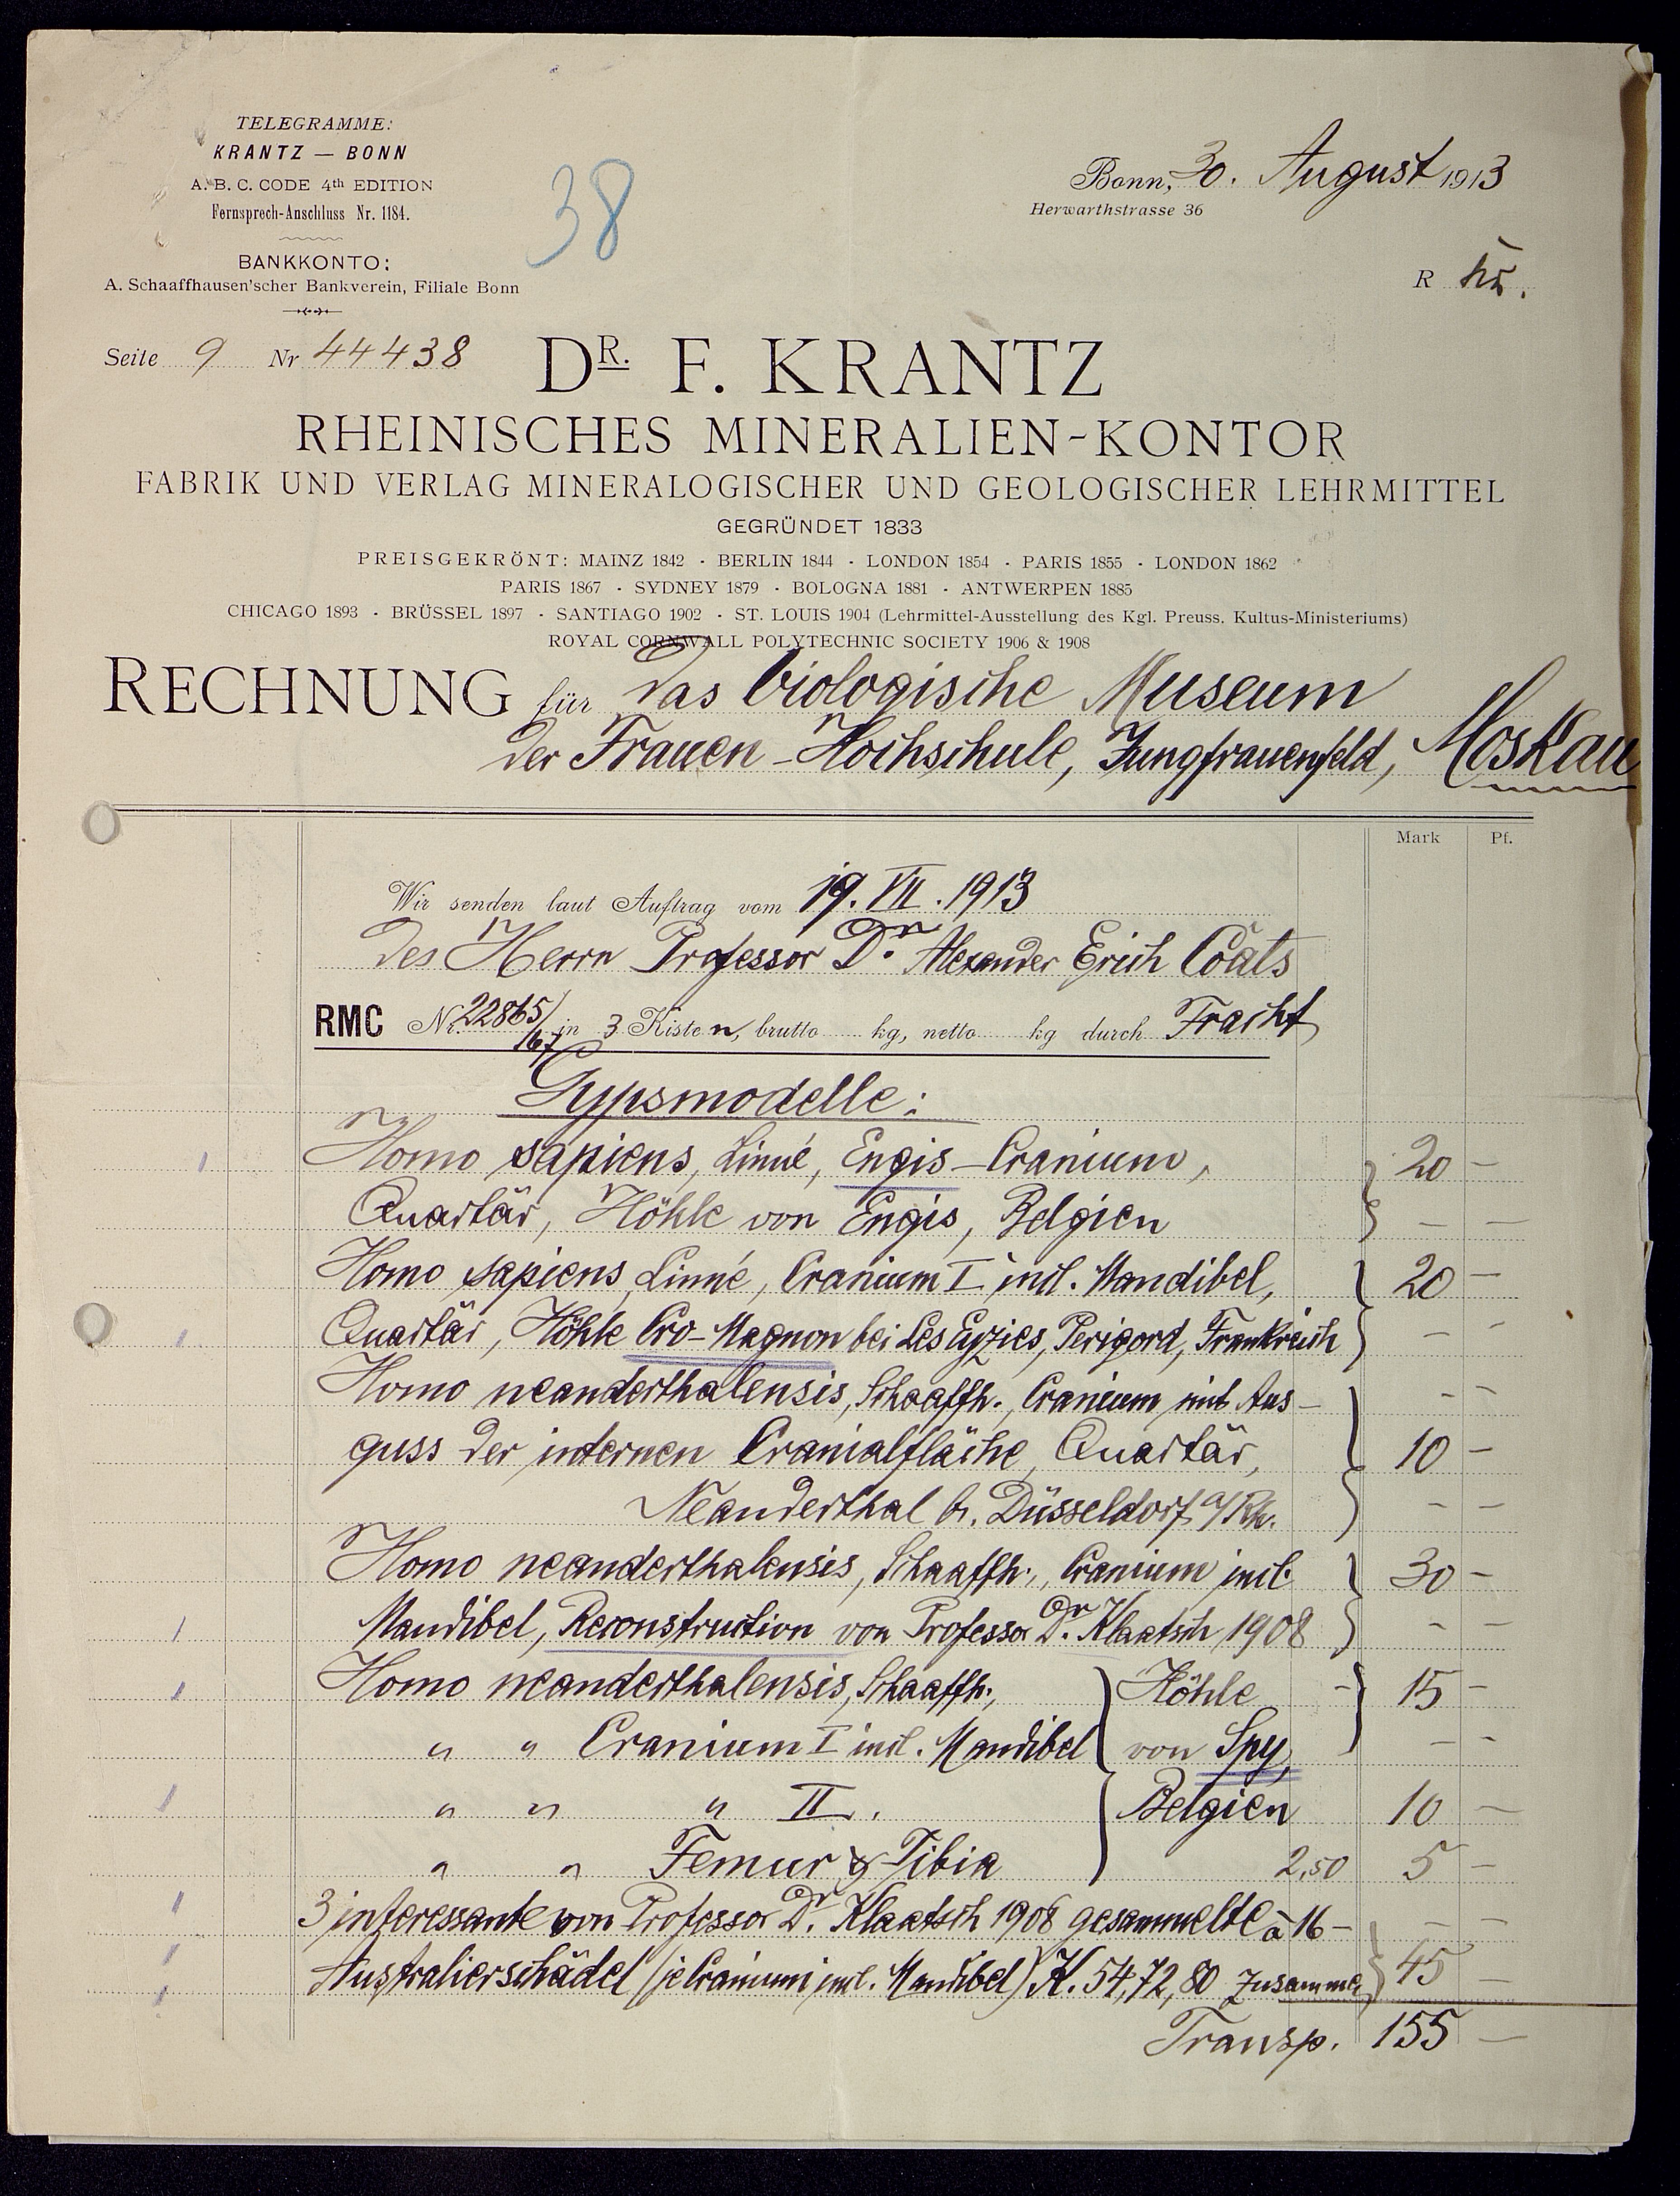 TELEGRAMME:
KRANTZ — BONN
A. B. C. CODE 4th EDITION
Fernsprech-Anschluss Nr. 1184.
BANKKONTO:
A. Schaaffhausen'scher Bankverein, Filiale Bonn
38
Bonn, 30. August 1913
Herwarthstrasse 36
R
Seite 9 Nr 44438
DR. F. KRANTZ
RHEINISCHES MINERALIEN-KONTOR
FABRIK UND VERLAG MINERALOGISCHER UND GEOLOGISCHER LEHRMITTEL
GEGRÜNDET 1833
PREISGEKRÖNT: MAINZ 1842 · BERLIN 1844 · LONDON 1854 · PARIS 1855 · LONDON 1862
PARIS 1867 · SYDNEY 1879 · BOLOGNA 1881 · ANTWERPEN 1885
CHICAGO 1893 · BRÜSSEL 1897 · SANTIAGO 1902 · ST. LOUIS 1904 (Lehrmittel-Ausstellung des Kgl. Preuss. Kultus-Ministeriums)
ROYAL CORNWALL POLYTECHNIC SOCIETY 1906 & 1908
RECHNUNG für das biologische Museum
der Frauen-Hochschule, Jungfrauenfeld, Moskau
Mark Pf.
Wir senden laut Auftrag vom 19. VII. 1913
des Herrn Professor Dr. Alexander Erich Coats
RMC Nr. 22865/167 in 3 Kisten, brutto kg, netto kg durch Fracht
Gypsmodelle:
Homo sapiens, Linné, Engis-Cranium, 20 —
Quartär, Höhle von Engis, Belgien — —
Homo sapiens, Linné, Cranium I incl. Mandibel, 20 —
Quartär, Höhle Cro-Magnon bei Les Eyzies, Perigord, Frankreich — —
Homo neanderthalensis, Schaaffh., Cranium mit Aus- — —
guss der internen Cranialfläche, Quartär, 10 —
Neanderthal b. Düsseldorf a/Rh. — —
Homo neanderthalensis, Schaaffh., Cranium incl. 30 —
Mandibel, Reconstruction von Professor Dr. Klaatsch 1908 — —
Homo neanderthalensis, Schaaffh., Höhle - 15 —
" " Cranium I incl. Mandibel von Spy, — —
" " " II. Belgien 10 —
" " Femur & Tibia 2,50 5 —
3 interessante von Professor Dr. Klaatsch 1908 gesammelte à 16— — —
Australierschädel (je Cranium incl. Mandibel) K. 54, 72, 80 zusammen 45 —
Transp. 155 —